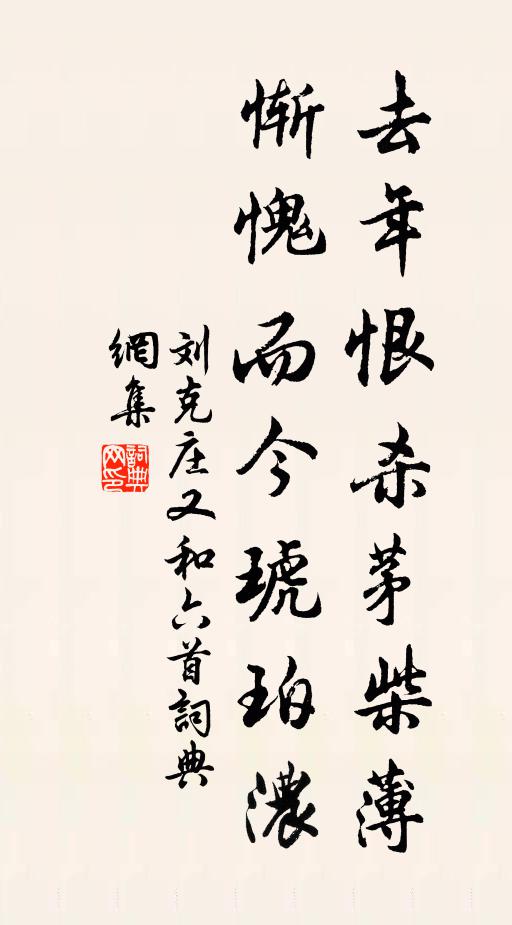 去年恨杀茅柴薄
惭愧而今琥珀濃
刘克庄又和六首詞典
網集
詞典網印